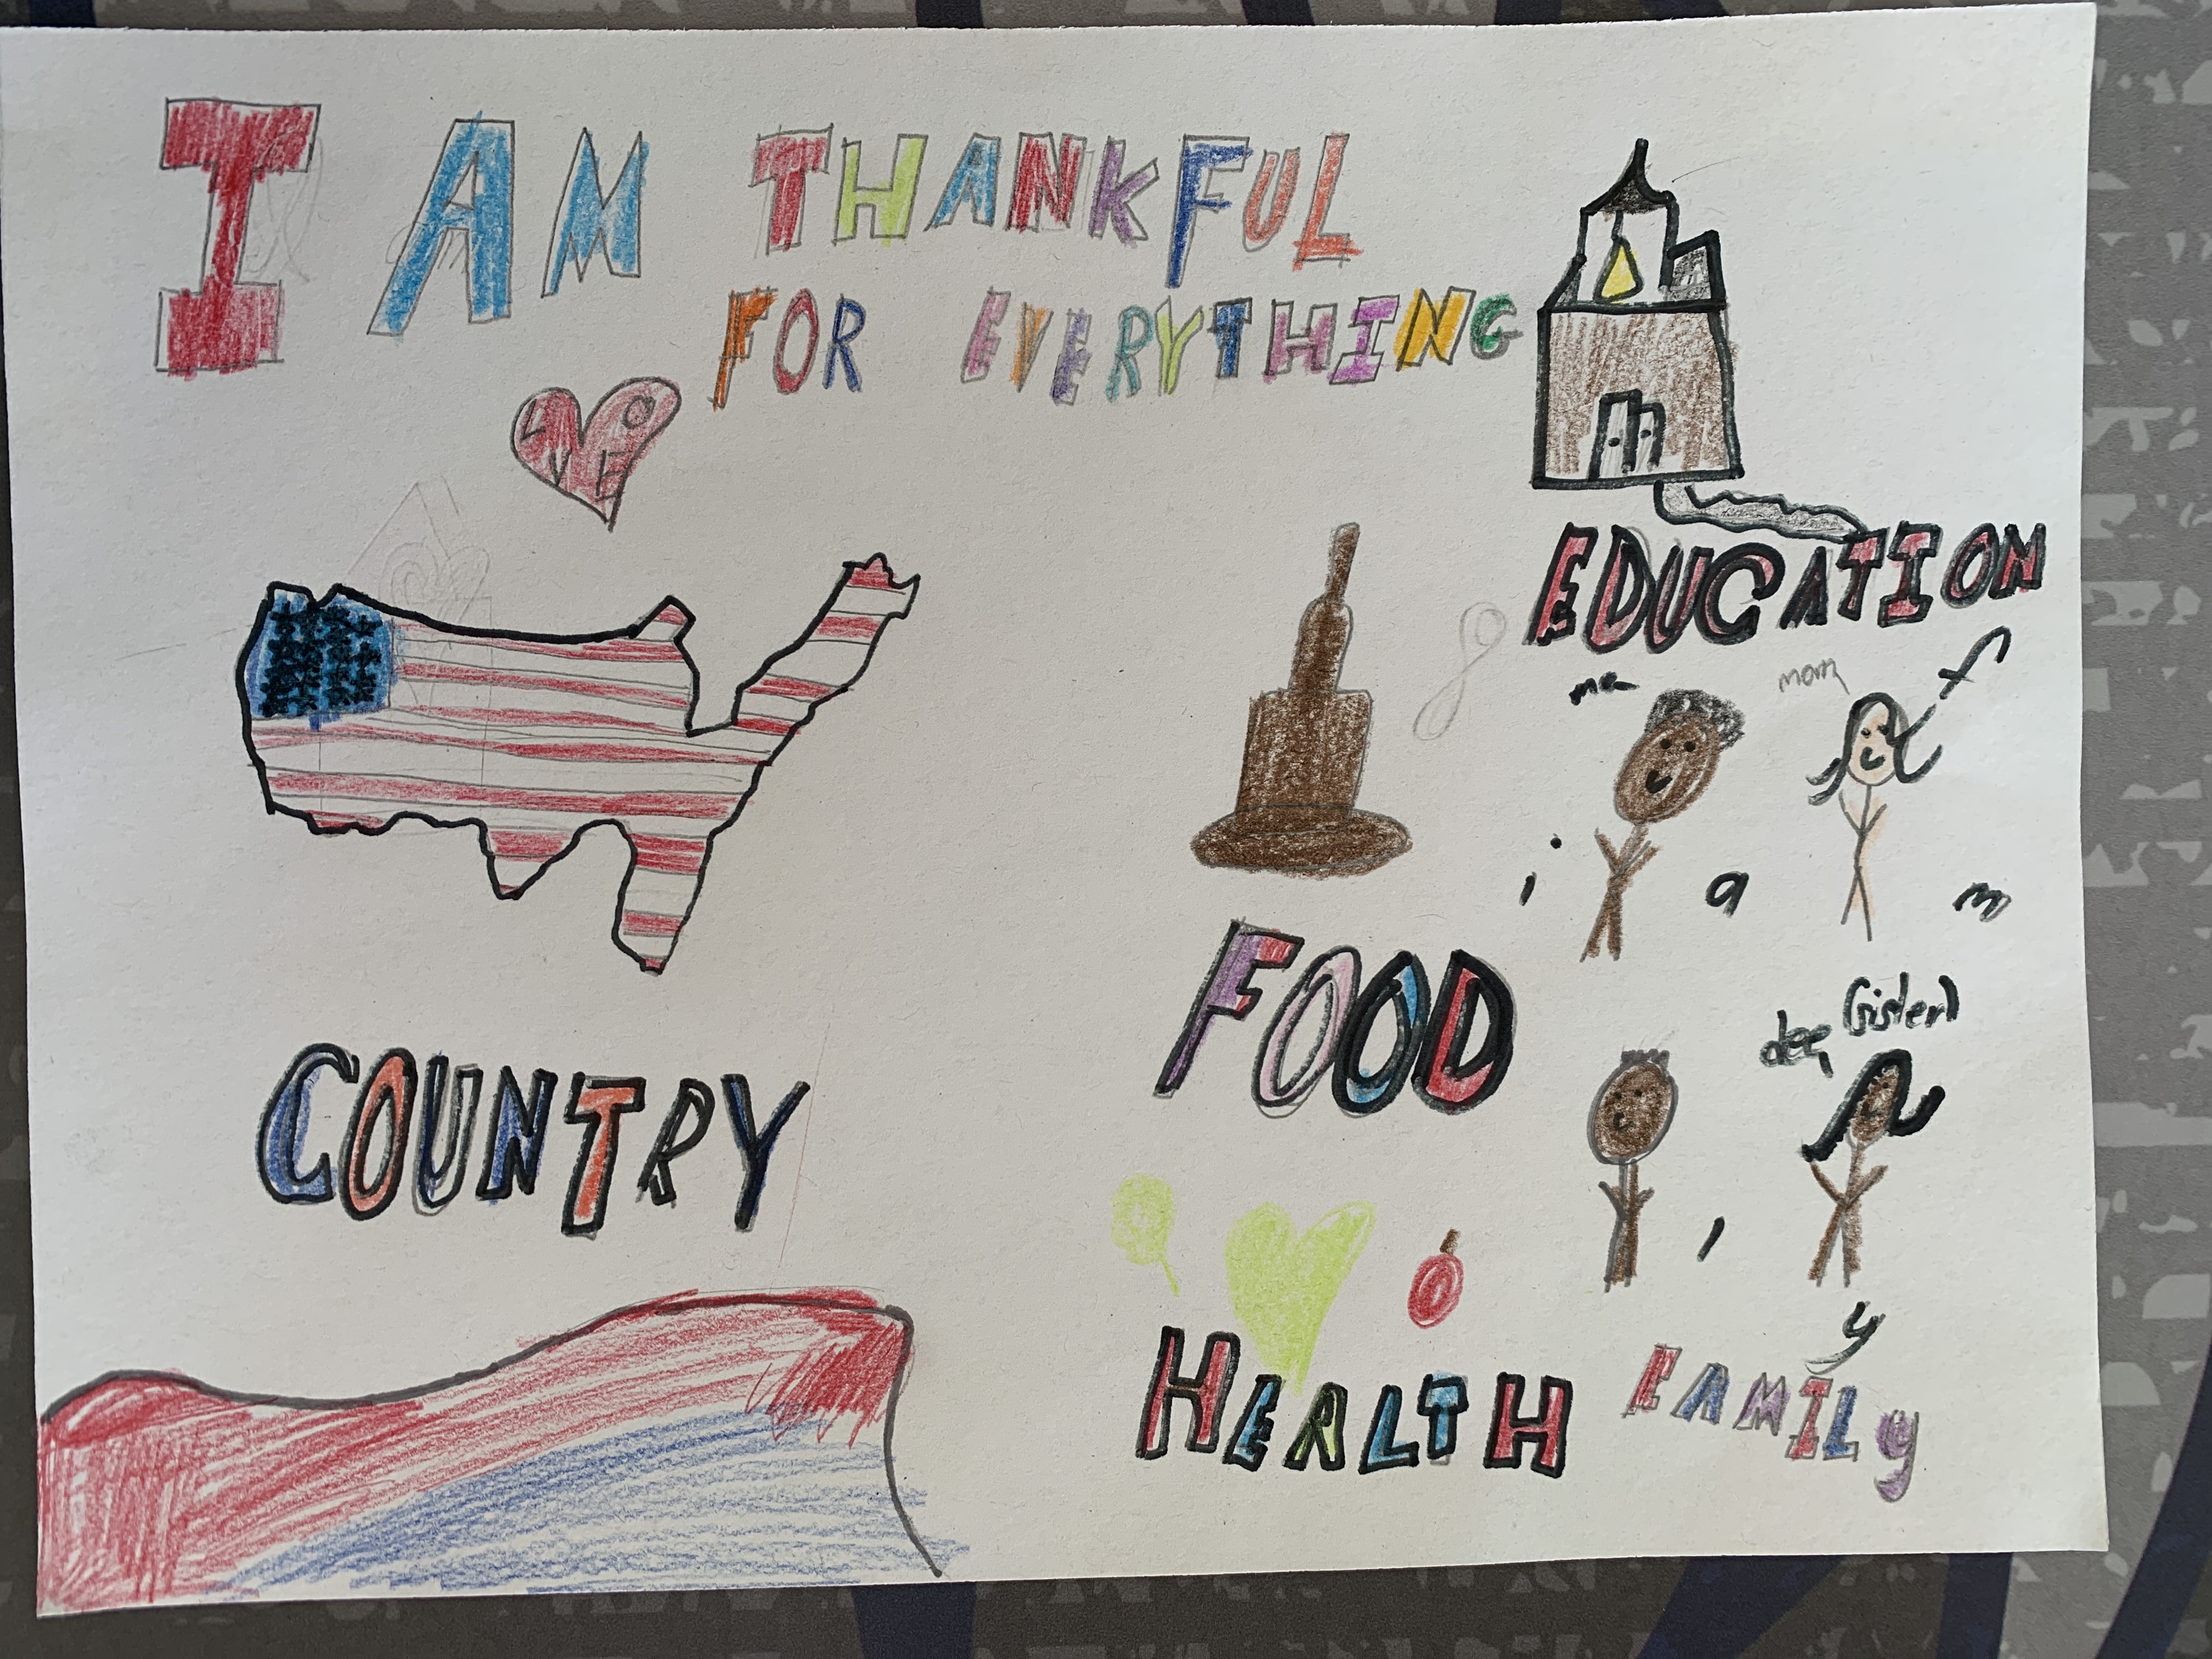 I AM THANKFUL
FOR EVERYTHING
LOVE
EDUCATION
me
mom
f
i
a
m
FOOD
dee (sister)
COUNTRY
l
y
HEALTH
FAMILY